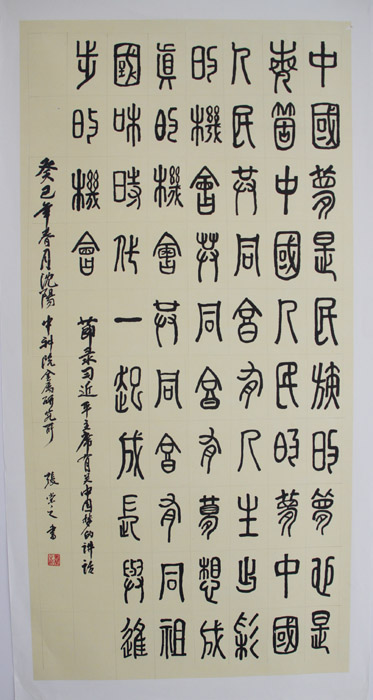 中國夢是民族的夢也是
每箇中國人民的夢中國
人民共同享有人生出彩
的機會共同享有夢想成
真的機會共同享有同祖
國和時代一起成長與進
步的機會
節录习近平主席有关中国梦的讲话
癸巳年春月沈陽 中科院金属研究所 張 書